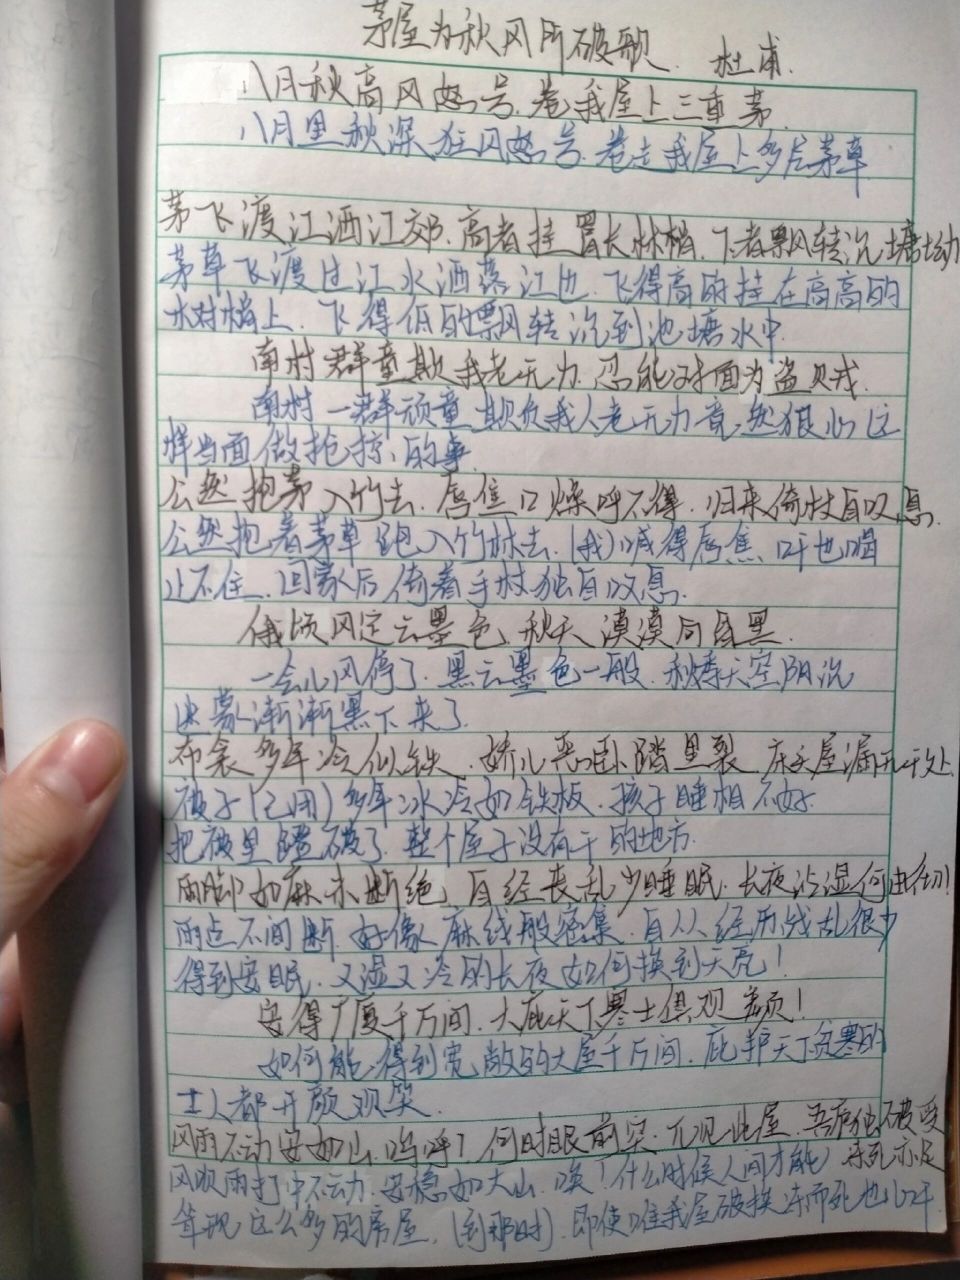 茅屋为秋风所破歌 杜甫.
八月秋高风怒号.卷我屋上三重茅.
八月里秋深狂风怒号.卷走我屋上多层茅草
茅飞渡江洒江郊.高者挂罥长林梢.下者飘转沉塘坳
茅草飞渡过江水洒落江边.飞得高的挂在高高的
树梢上.飞得低的飘转沉到池塘水中
南村群童欺我老无力.忍能对面为盗贼.
南村一群顽童欺负我人老无力竟然狠心这
样当面做抢掠的事
公然抱茅入竹去.唇焦口燥呼不得.归来倚杖自叹息.
公然抱着茅草跑入竹林去.(我)喊得唇焦口干也喝
止不住.回家后倚着手杖独自叹息.
俄顷风定云墨色.秋天漠漠向昏黑.
一会儿风停了.黑云墨色一般.秋季天空阴沉
迷蒙渐渐黑下来了
布衾多年冷似铁.娇儿恶卧踏里裂.床头屋漏无干处.
被子(已用)多年冰冷如铁板.孩子睡相不好.
把被里蹬破了.整个屋子没有干的地方.
雨脚如麻未断绝.自经丧乱少睡眠.长夜沾湿何由彻!
雨点不间断.好像麻线般密集.自从经历战乱很少
得到安眠.又湿又冷的长夜如何挨到天亮!
安得广厦千万间.大庇天下寒士俱欢颜!
如何能得到宽敞的大屋千万间.庇护天下贫寒的
士人都开颜欢笑.
风雨不动安如山.呜呼!何时眼前突兀见此屋.吾庐独破受
冻死亦足
风吹雨打中不动.安稳如大山.唉!什么时候人间才能
算现这么多的房屋.(到那时).即使唯我屋破挨冻而死也心甘.